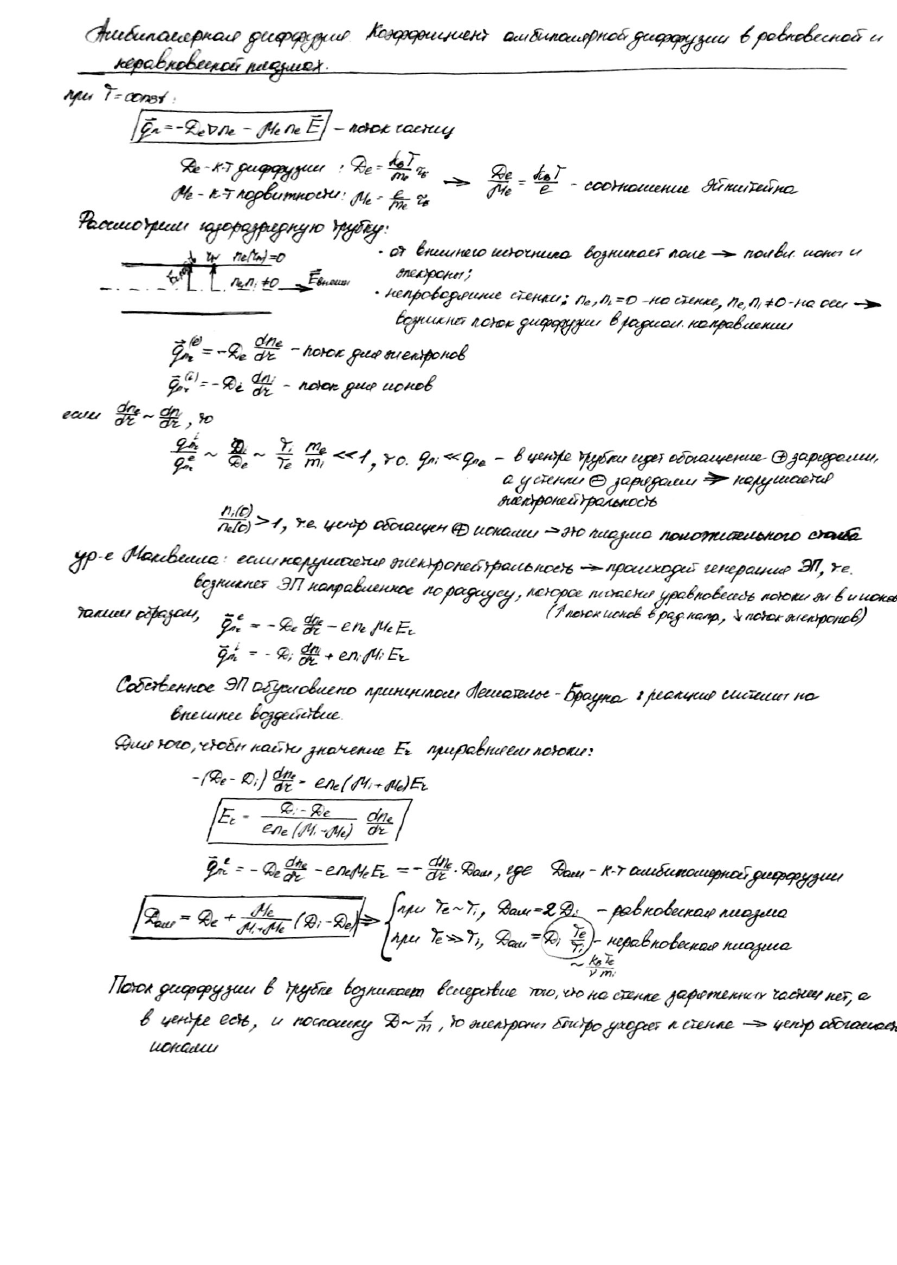 Амбиполярная диффузия. Коэффициент амбиполярной диффузии в равновесной и
неравновесной плазмах.
при T=const:
g⃗n = -De∇ne - μe ne E⃗ - поток частиц
De - к-т диффузии: De = kвT/me τв
→ De/μe = kвT/e - соотношение Эйнштейна
μe - к-т подвижности: μe = e/me τв
Рассмотрим газоразрядную трубку:
rw ne(rw)=0
ne,ni≠0 E⃗внешн
• от внешнего источника возникает поле → появл. ионы и
электроны;
• непроводящие стенки; ne, ni=0 - на стенке, ne, ni≠0 - на оси →
возникнет поток диффузии в радиал. направлении
g⃗nr(e) = -De dne/dr - поток для электронов
g⃗nr(i) = -Di dni/dr - поток для ионов
если dne/dr ~ dni/dr, то
gnr^i/gnr^e ~ Di/De ~ Ti/Te me/mi <<1, т.о. gni << gne - в центре трубки идет обогащение ⊕ зарядами,
а у стенки ⊖ зарядами → нарушается
электронейтральность
ni(0)/ne(0) > 1, т.е. центр обогащен ⊕ ионами → это плазма положительного столба
ур-е Максвелла: если нарушается электронейтральность → происходит генерация ЭП, т.е.
возникнет ЭП направленное по радиусу, которое пытается уравновесить потоки эл-в и ионов
(↑ поток ионов в рад. напр., ↓ поток электронов)
таким образом, g⃗nr^e = -De dne/dr - ene μe Er
g⃗nr^i = -Di dni/dr + eni μi Er
Собственное ЭП обусловлено принципом Лешателье-Брауна: реакция системы на
внешнее воздействие.
Для того, чтобы найти значение Er приравняем потоки:
-(De - Di) dne/dr = ene(μi+μe)Er
Er = (Di - De)/(ene(μi+μe)) dne/dr
g⃗nr^e = -De dne/dr - eneμeEr = -dne/dr · Dам, где Dам - к-т амбиполярной диффузии
Dам = De + μe/(μi+μe) (Di - De) ⇒ { при Te~Ti, Dам=2Di - равновесная плазма
при Te>>Ti, Dам = Di Te/Ti - неравновесная плазма
~ kвTe/νmi
Поток диффузии в трубке возникает вследствие того, что на стенке заряженных частиц нет, а
в центре есть, и поскольку D~1/m, то электроны быстро уходят к стенке → центр обогащается
ионами